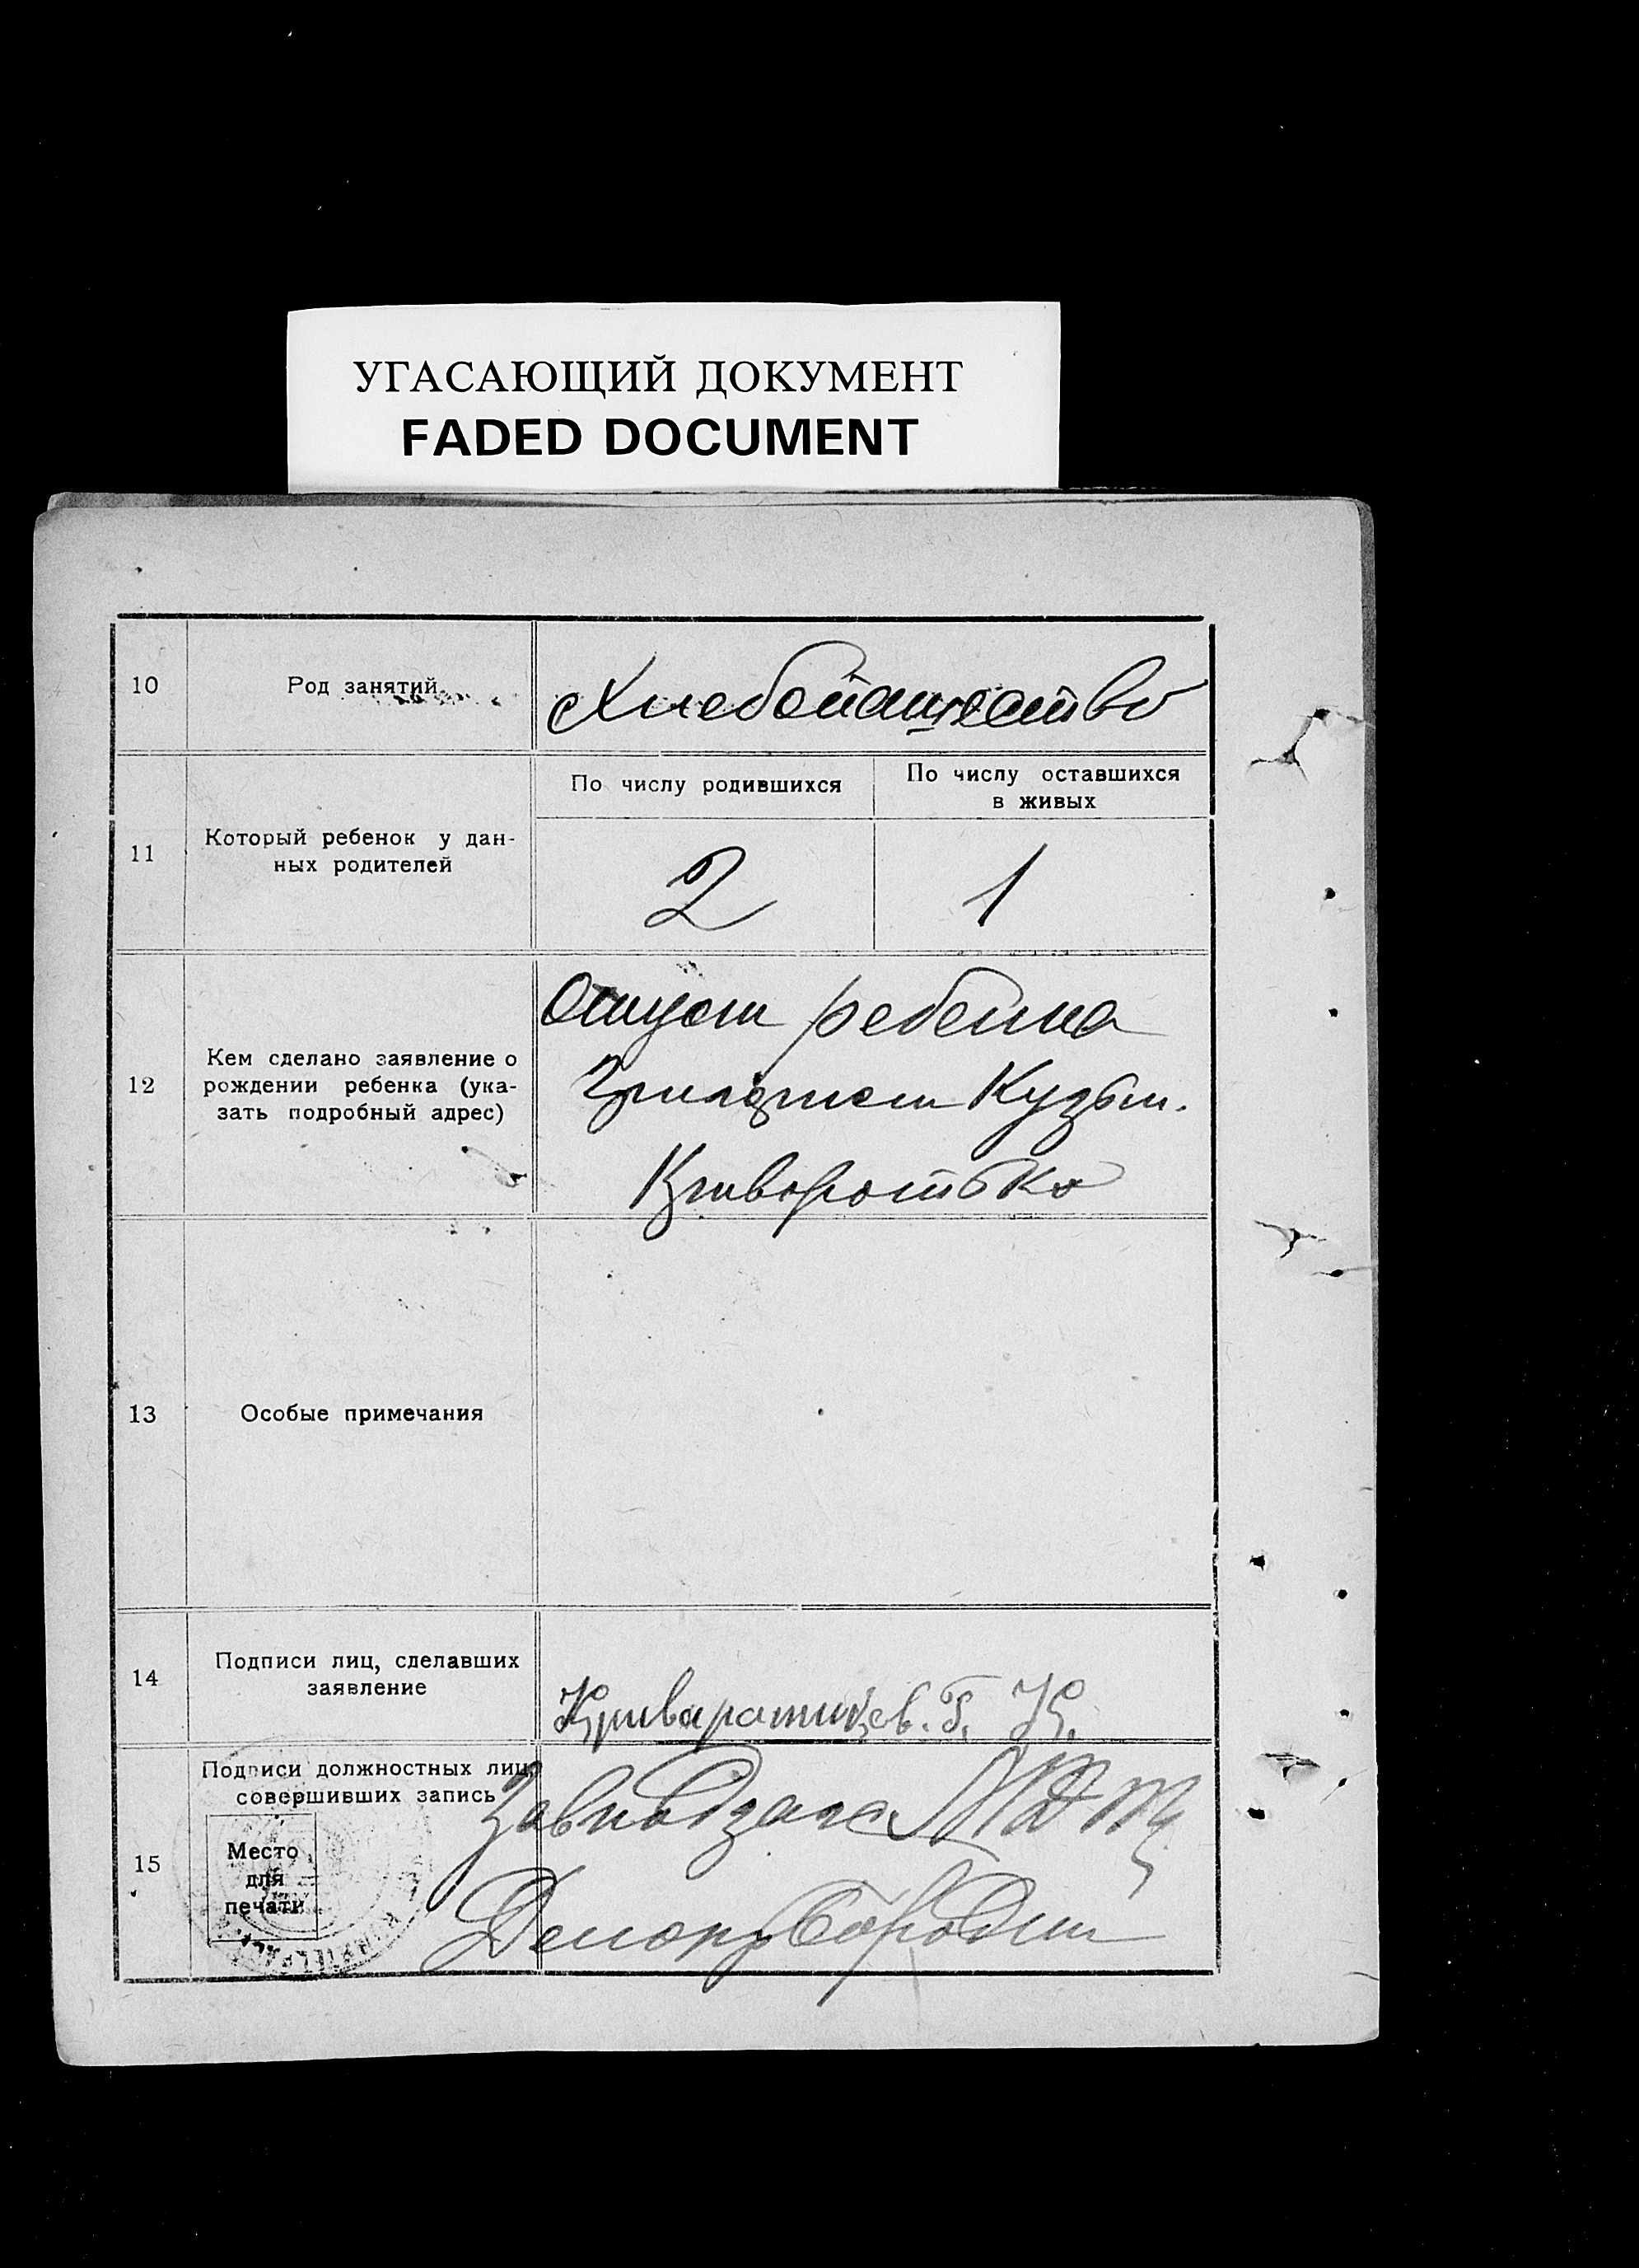 УГАСАЮЩИЙ ДОКУМЕНТ
FADED DOCUMENT
10
Род занятий
Хлебопашество
11
Который ребенок у дан-
ных родителей
По числу родившихся
По числу оставшихся
в живых
2
1
12
Кем сделано заявление о
рождении ребенка (ука-
зать подробный адрес)
Отцом ребенка
Кузьм.
Криворотько
13
Особые примечания
14
Подписи лиц, сделавших
заявление
К.
15
Подписи должностных лиц,
совершивших запись
Место
для
печати
Завподзагс
Делопр Бородин